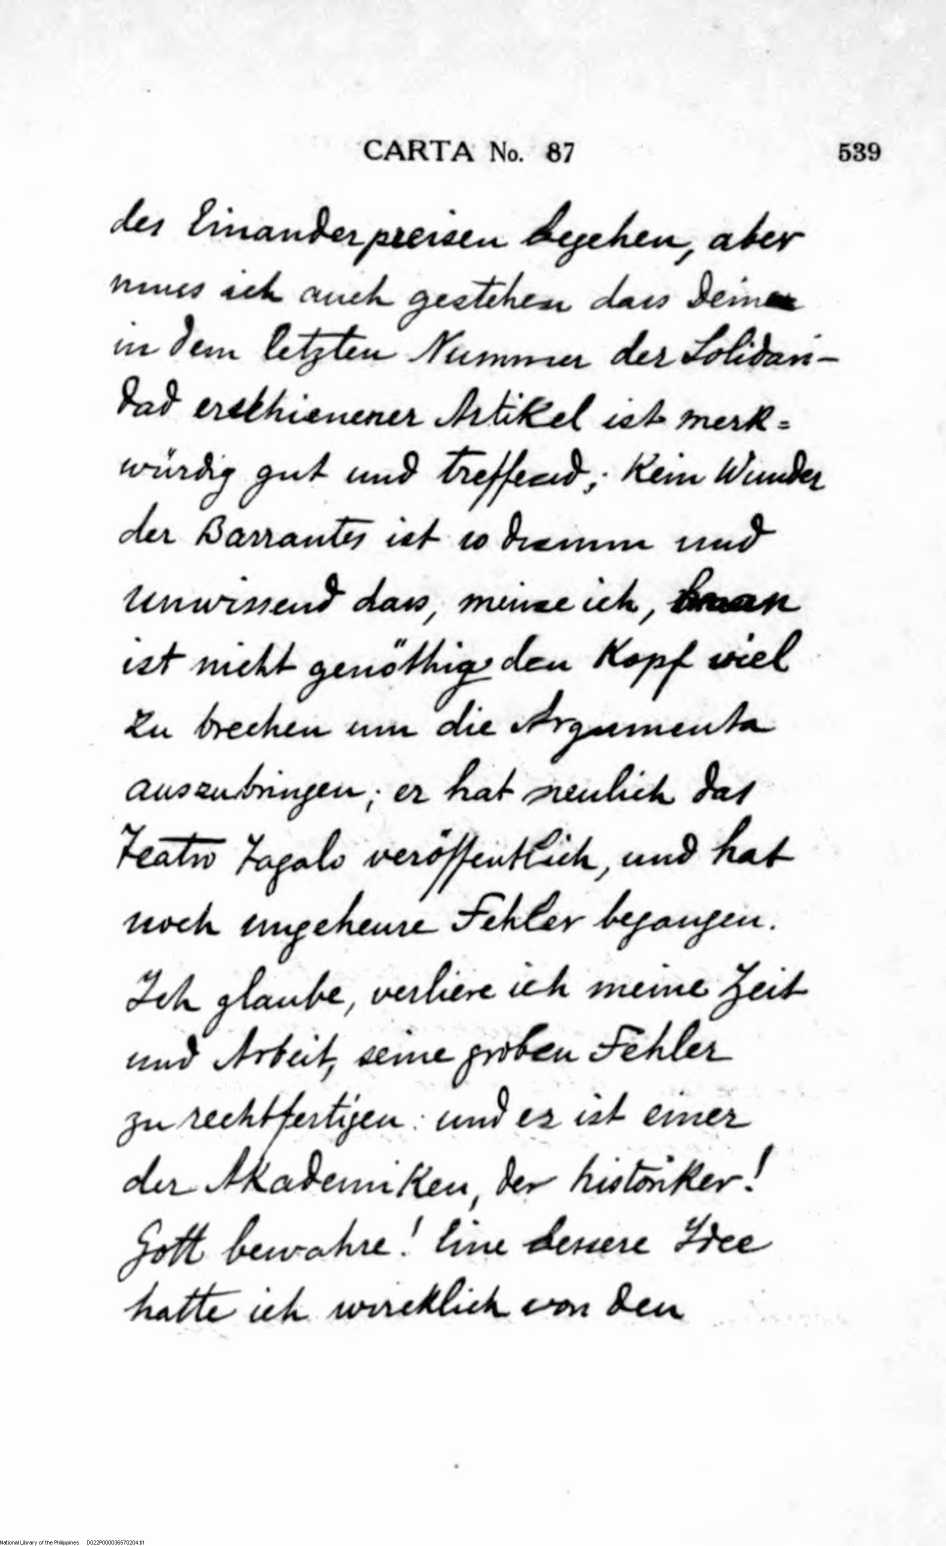 CARTA No. 87 539
des Einanderpreisen begehen, aber
muss ich auch gestehen dass Dein
in dem letzten Nummer der Solidari-
dad erschienener Artikel ist merk=
würdig gut und treffend; Kein Wunder
der Barrantes ist so dumm und
unwissend dass, meine ich, man
ist nicht genöthig den Kopf viel
zu brechen um die Argumenta
auszubringen; er hat neulich das
Teatro Tagalo veröffentlich, und hat
noch ungeheure Fehler begangen.
Ich glaube, verliere ich meine Zeit
und Arbeit, seine groben Fehler
zu rechtfertigen: und er ist einer
der Akademiken, der historiker!
Gott bewahre! Eine bessere Idee
hatte ich wircklich von den
National Library of the Philippines D022P000036570204.tif